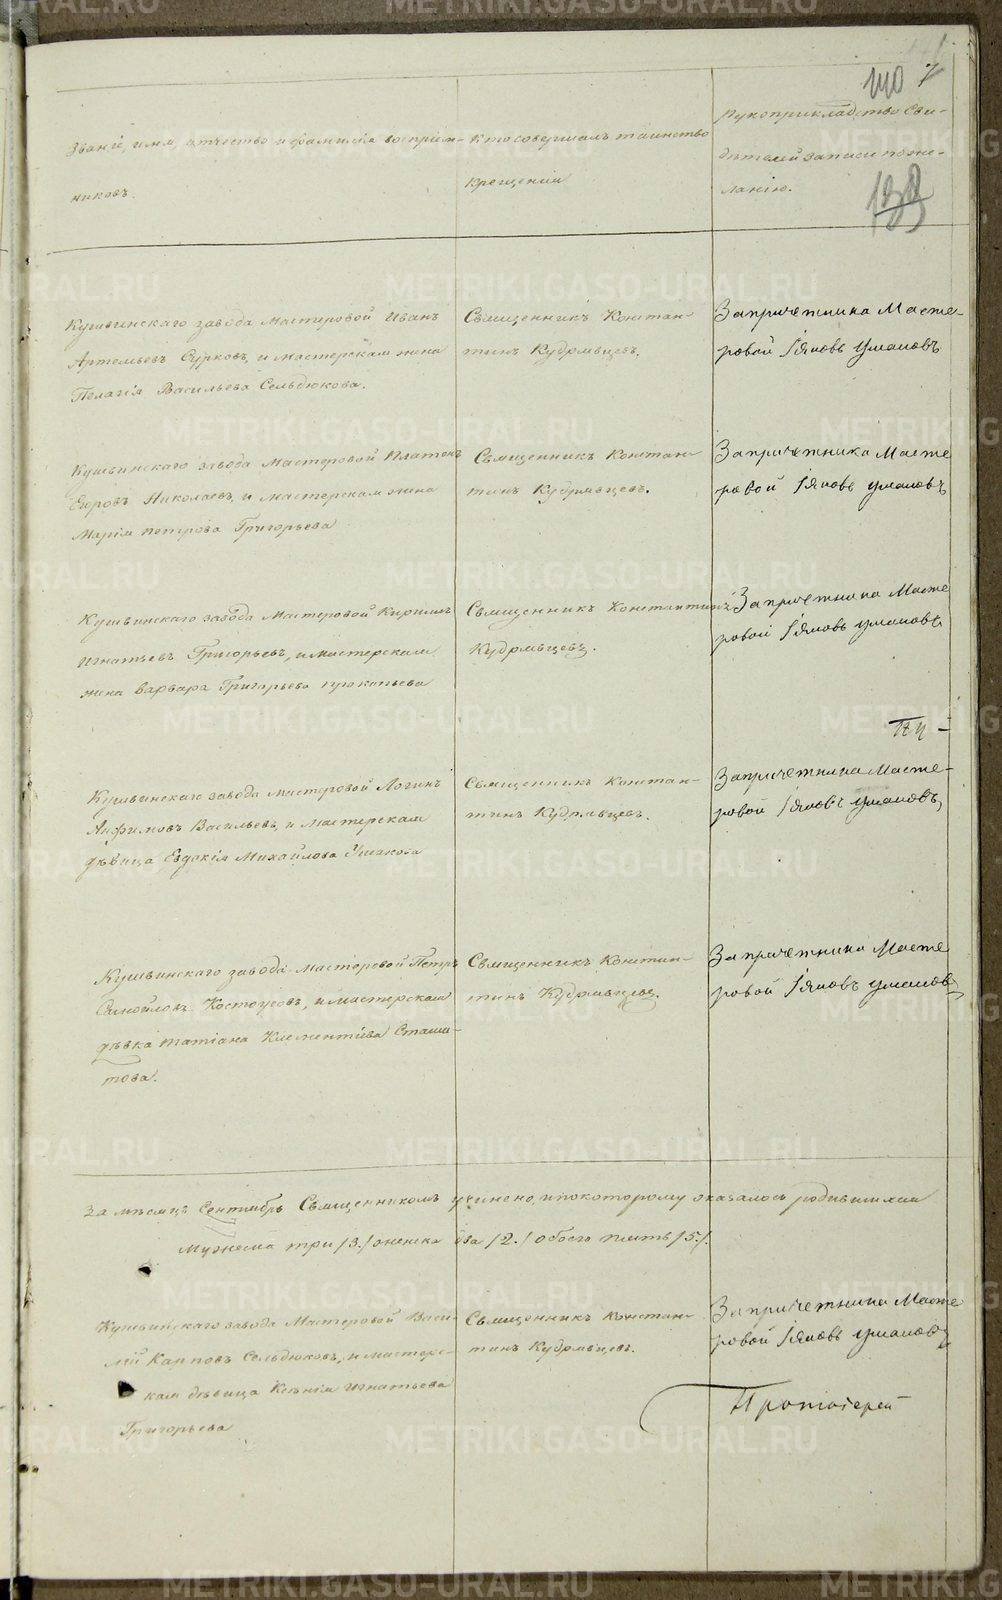 110 7
138
Званіе, имя, отчество и фамилія воспріем-
никовъ.
Кто совершалъ таинство
крещенія
Рукоприкладство Сви-
дѣтелей записи по же-
ланію.
Кушвинскаго завода Мастеровой Иванъ
Артемьевъ Сурковъ, и мастерская жена
Пелагія Васильева Сельдюкова.
Священникъ Констан-
тинъ Кудрявцевъ.
За причетника Масте-
ровой Іяковъ Ушаковъ
Кушвинскаго завода Мастеровой Платонъ
Егоровъ Николаевъ, и мастерская жена
Марія Петрова Григорьева
Священникъ Констан-
тинъ Кудрявцевъ.
За причетника Масте
ровой Іяковъ Ушаковъ
Кушвинскаго завода Мастеровой Кирилъ
Игнатьевъ Григорьевъ, и мастерская
жена Варвара Григорьева Прокопьева
Священникъ Константинъ
Кудрявцевъ.
За причетника Масте
ровой Іяковъ Ушаковъ
Кушвинскаго завода мастеровой Логинъ
Анфимовъ Васильевъ, и Мастерская
дѣвица Евдокія Михайлова Ушакова
Священникъ Констан-
тинъ Кудрявцевъ.
За причетника Масте-
ровой Іяковъ Ушаковъ
Кушвинскаго завода Мастеровой Петръ
Самойловъ Костоусовъ, и мастерская
дѣвка Татіана Клементіева Сташа-
това.
Священникъ Констан-
тинъ Кудрявцевъ.
За причетника Масте
ровой Іяковъ Ушаковъ
За мѣсяцъ Сентябрь Священникомъ учинено, и по которому оказалось родившихся
Мужеска три /3./ женска два /2./ обоего пять /5./.
Кушвинскаго завода Мастеровой Васи-
лій Карповъ Сельдюковъ, и мастерс-
кая дѣвица Ксенія Игнатьева
Григорьева
Священникъ Констан-
тинъ Кудрявцевъ.
За причетника Масте
ровой Іяковъ Ушаковъ
Протоіерей
METRIKI.GASO-URAL.RU